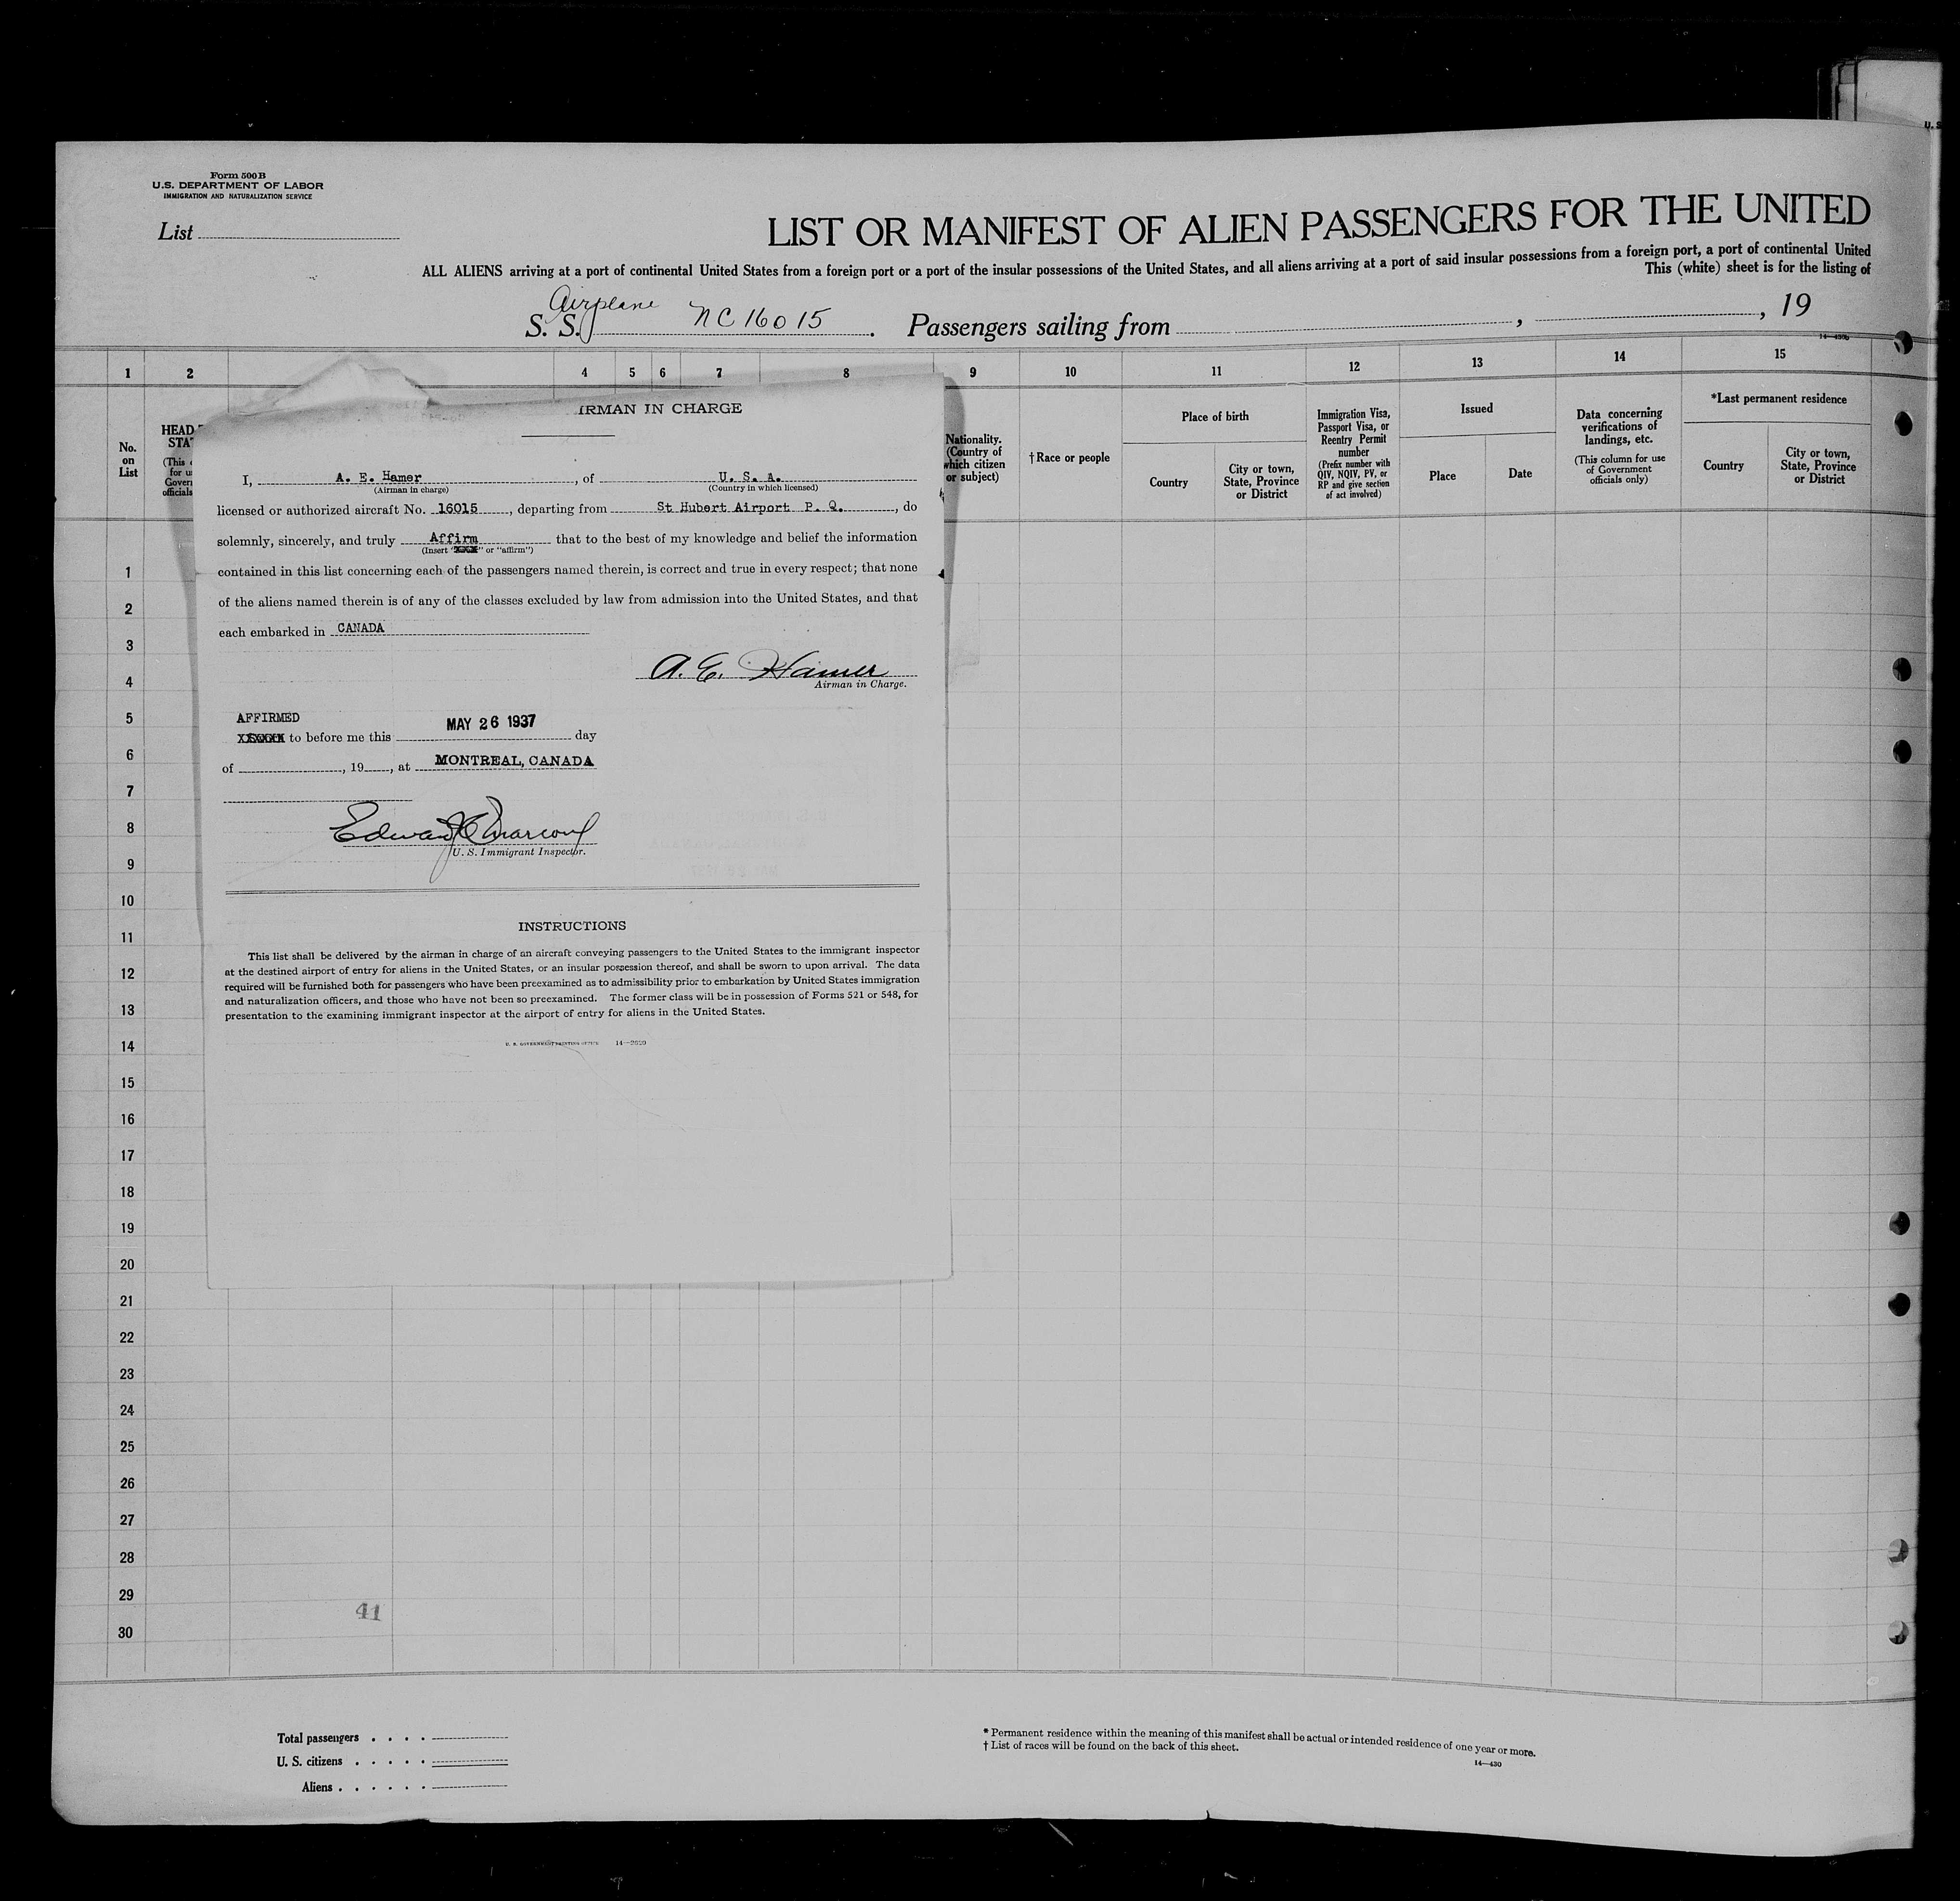 U. S
Form 500 B
U.S. DEPARTMENT OF LABOR
IMMIGRATION AND NATURALIZATION SERVICE
List
LIST OR MANIFEST OF ALIEN PASSENGERS FOR THE UNITED
ALL ALIENS arriving at a port of continental United States from a foreign port or a port of the insular possessions of the United States, and all aliens arriving at a port of said insular possessions from a foreign port, a port of continental United
This (white) sheet is for the listing of
Airplane
S. S. NC 16015 . Passengers sailing from , , 19
14—430b
1 2 4 5 6 7 8 9 10 11 12 13 14 15
No.
on
List
HEAD
STAT
(This
for u
Govern
officials
Nationality.
(Country of
which citizen
or subject)
†Race or people
Place of birth
Country
City or town,
State, Province
or District
Immigration Visa,
Passport Visa, or
Reentry Permit
number
(Prefix number with
QIV, NQIV, PV, or
RP and give section
of act involved)
Issued
Place
Date
Data concerning
verifications of
landings, etc.
(This column for use
of Government
officials only)
*Last permanent residence
Country
City or town,
State, Province
or District
IRMAN IN CHARGE
I, A. E. Hamer , of U. S. A.
(Airman in charge) (Country in which licensed)
licensed or authorized aircraft No. 16015 , departing from St Hubert Airport P. Q. , do
solemnly, sincerely, and truly Affirm that to the best of my knowledge and belief the information
(Insert " " or "affirm")
contained in this list concerning each of the passengers named therein, is correct and true in every respect; that none
of the aliens named therein is of any of the classes excluded by law from admission into the United States, and that
each embarked in CANADA
A. E. Hamer
Airman in Charge.
AFFIRMED
XXXXXX to before me this MAY 26 1937 day
of , 19 , at MONTREAL, CANADA
U. S. Immigrant Inspector.
INSTRUCTIONS
This list shall be delivered by the airman in charge of an aircraft conveying passengers to the United States to the immigrant inspector
at the destined airport of entry for aliens in the United States, or an insular possession thereof, and shall be sworn to upon arrival. The data
required will be furnished both for passengers who have been preexamined as to admissibility prior to embarkation by United States immigration
and naturalization officers, and those who have not been so preexamined. The former class will be in possession of Forms 521 or 548, for
presentation to the examining immigrant inspector at the airport of entry for aliens in the United States.
U. S. GOVERNMENT PRINTING OFFICE 14—2629
1
2
3
4
5
6
7
8
9
10
11
12
13
14
15
16
17
18
19
20
21
22
23
24
25
26
27
28
29
30
41
Total passengers . . . .
U. S. citizens . . . . .
Aliens . . . . . .
* Permanent residence within the meaning of this manifest shall be actual or intended residence of one year or more.
† List of races will be found on the back of this sheet.
14—430